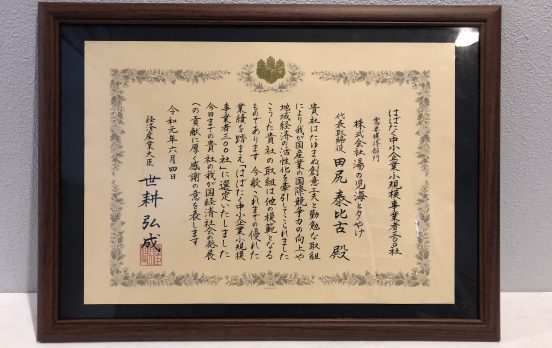 はばたく中小企業・小規模事業者三〇〇社
需要獲得部門
株式会社湯の児海と夕やけ
代表取締役　田尻　泰比古　殿
貴社はたゆまぬ創意工夫と勤勉な取組
により我が国産業の国際競争力の向上や
地域経済の活性化を牽引してこられました
こうした貴社の取組は他の模範となる
ものであります　今般、これまでの優れた
業績を踏まえ「はばたく中小企業・小規模
事業者三〇〇社」に選定いたしました
今日までの貴社の我が国経済社会の発展
への貢献に厚く感謝の意を表します
令和元年六月四日
経済産業大臣　世耕　弘成